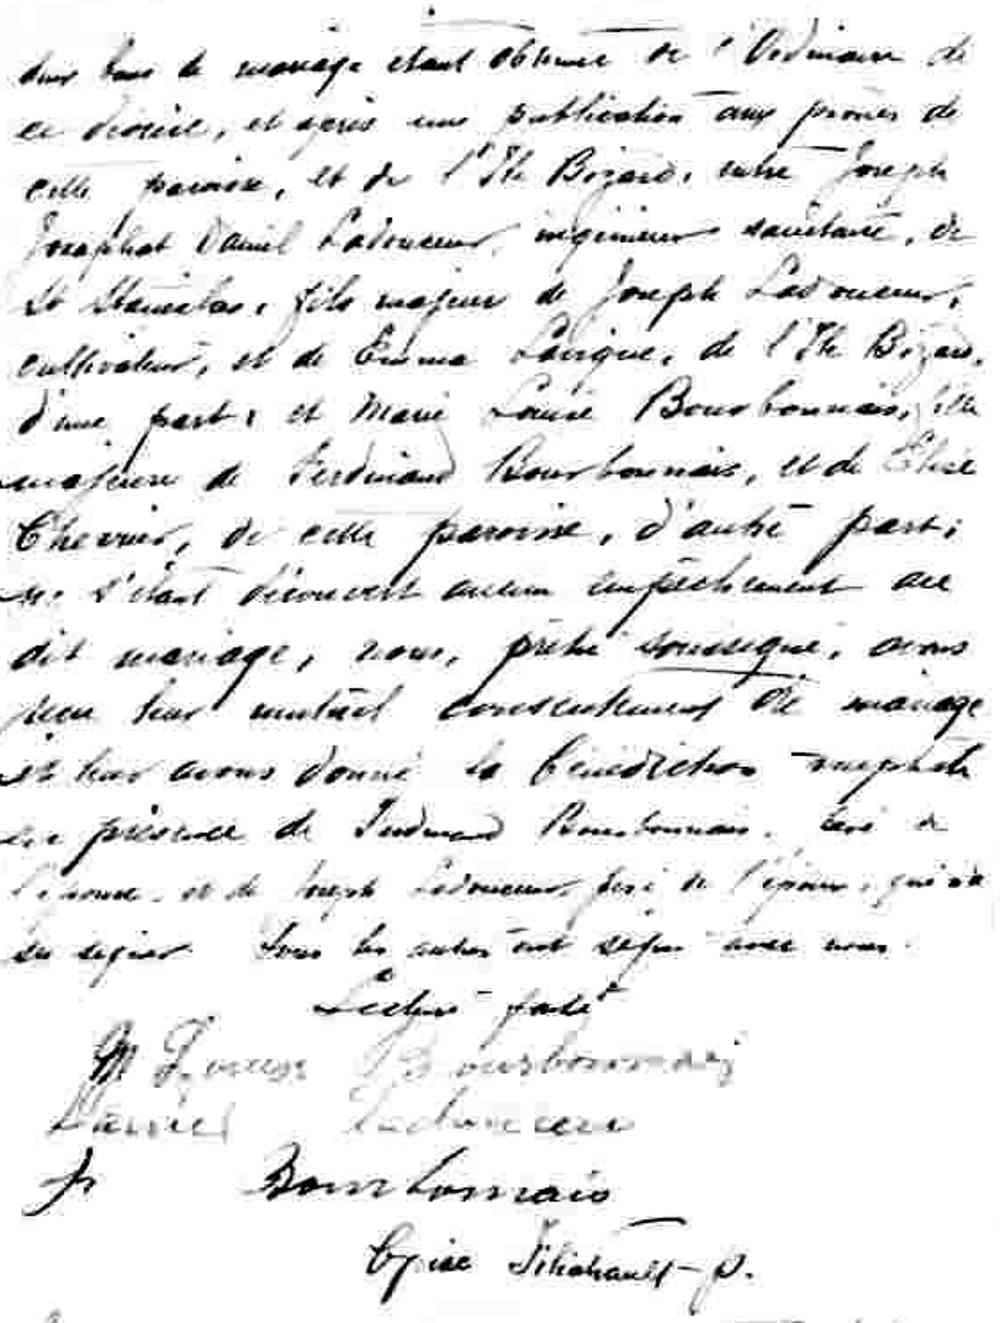 deux bans de mariage étant obtenue de l'Ordinaire de
ce diocèse, et après une publication aux prônes de
cette paroisse, et de l'Ile Bizard, entre Joseph
Josaphat Daniel Ladouceur, ingénieur sanitaire, de
St Stanislas, fils majeur de Joseph Ladouceur,
cultivateur, et de Emma Lavigne, de l'Ile Bizard,
d'une part; et Marie Louise Bourbonnais, fille
majeure de Ferdinand Bourbonnais, et de Elise
Chevrier, de cette paroisse, d'autre part;
ne s'étant découvert aucun empêchement au
dit mariage, nous, prêtre soussigné, avons
reçu leur mutuel consentement de mariage
et leur avons donné la bénédiction nuptiale
en présence de Ferdinand Bourbonnais, père de
l'épouse, et de Joseph Ladouceur père de l'époux, qui n'a
su signer. Tous les autres ont signé avec nous.
Lecture faite
M Louise Bourbonnais
Daniel Ladouceur
Bourbonnais